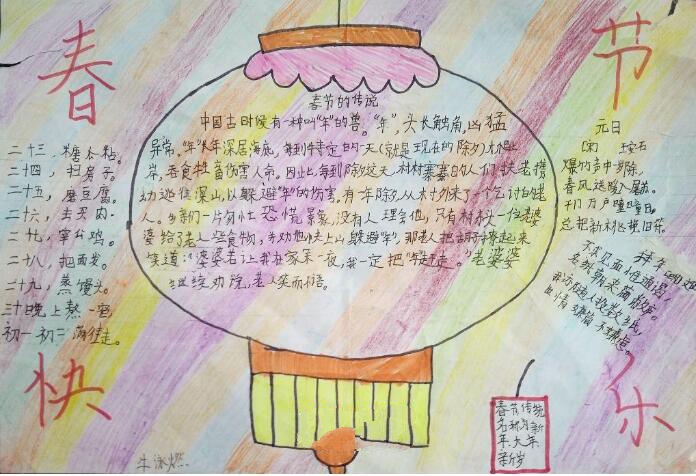 春
节
快
乐
春节的传说
中国古时侯有一种叫"年"的兽。"年",头长触角,凶猛
异常。"年"长年深居海底,每到特定的一天(就是现在的除夕)才爬上
岸,吞食牲畜伤害人命。因此,每到除夕这天,村村寨寨的人们扶老携
幼逃往深山,以躲避"年"的伤害,有一年除夕,从村外来了个乞讨的老
人。乡亲们一片匆忙恐慌景象,没有人理会他,只有村头一位老婆
婆给了老人些食物,并劝他快上山躲避"年",那老人把胡子撩起来
笑道:"婆婆若让我在家呆一夜,我一定把"年"赶走。"老婆婆
继续劝说,老人笑而不语。
二十三,糖瓜粘。
二十四,扫房子。
二十五,磨豆腐。
二十六,去买肉。
二十七,宰公鸡。
二十八,把面发。
二十九,蒸馒头。
三十晚上熬一宿
初一初二满街走。
元日
(宋) 王安石
爆竹声中一岁除,
春风送暖入屠苏。
千门万户曈曈日,
总把新桃换旧符。
拜年 (明)
不求见面惟通谒,
名纸朝来满敝庐。
我亦随人投数纸,
世情嫌简不嫌虚。
春节传统
名称为新
年、大年、
新岁